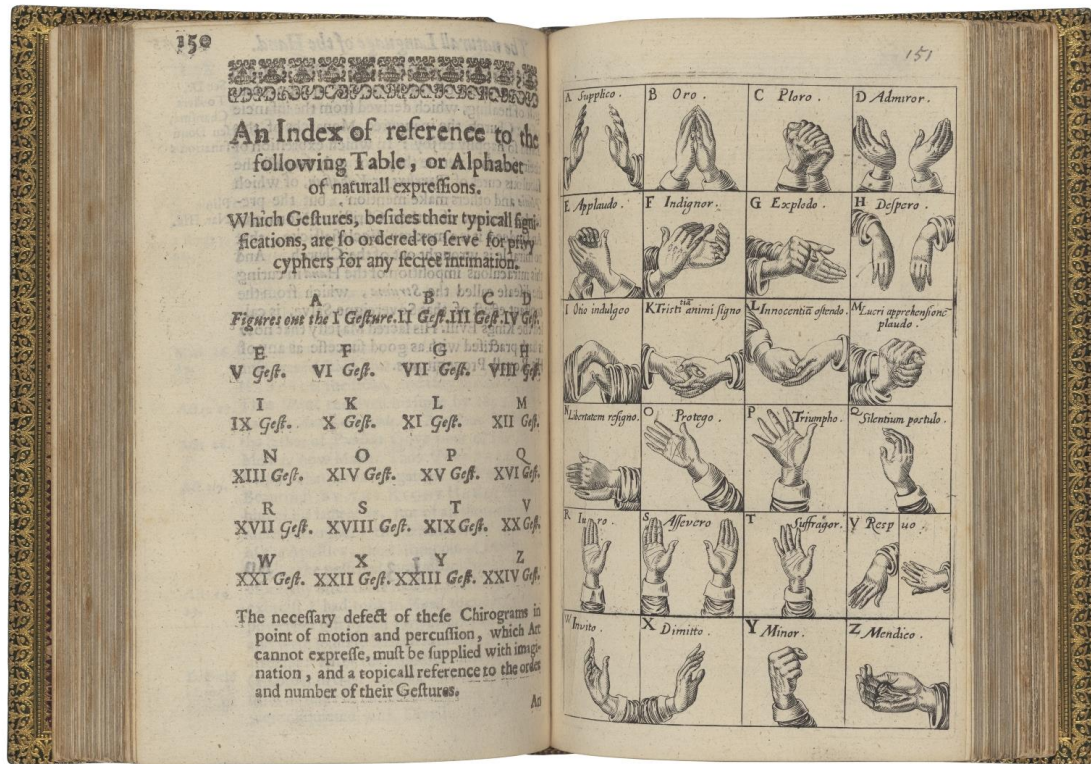 150
An Index of reference to the
following Table, or Alphabet
of naturall expreſſions.
Which Geſtures, beſides their typicall ſigni-
fications, are ſo ordered to ſerve for privy
cyphers for any ſecret intimation.
A B C D
Figures out the I Geſture. II Geſt. III Geſt. IV Geſt.
E F G H
V Geſt. VI Geſt. VII Geſt. VIII Geſt.
I K L M
IX Geſt. X Geſt. XI Geſt. XII Geſt.
N O P Q
XIII Geſt. XIV Geſt. XV Geſt. XVI Geſt.
R S T V
XVII Geſt. XVIII Geſt. XIX Geſt. XX Geſt.
W X Y Z
XXI Geſt. XXII Geſt. XXIII Geſt. XXIV Geſt.
The neceſſary defect of theſe Chirograms in
point of motion and percuſſion, which Art
cannot expreſſe, muſt be ſupplied with imagi-
nation, and a topicall reference to the order
and number of their Geſtures.
An
151
A Supplico.
B Oro.
C Ploro.
D Admiror.
E Applaudo.
F Indignor.
G Explodo.
H Deſpero.
I Otio indulgeo
K Triſtitiā animi ſigno
L Innocentiā oſtendo.
M Lucri apprehenſionē
plaudo.
N Libertatem reſigno.
O Protego.
P Triumpho.
Q Silentium poſtulo.
R Iuro.
S Aſſevero
T Suffragor.
V Reſpuo.
W Invito.
X Dimitto.
Y Minor.
Z Mendico.